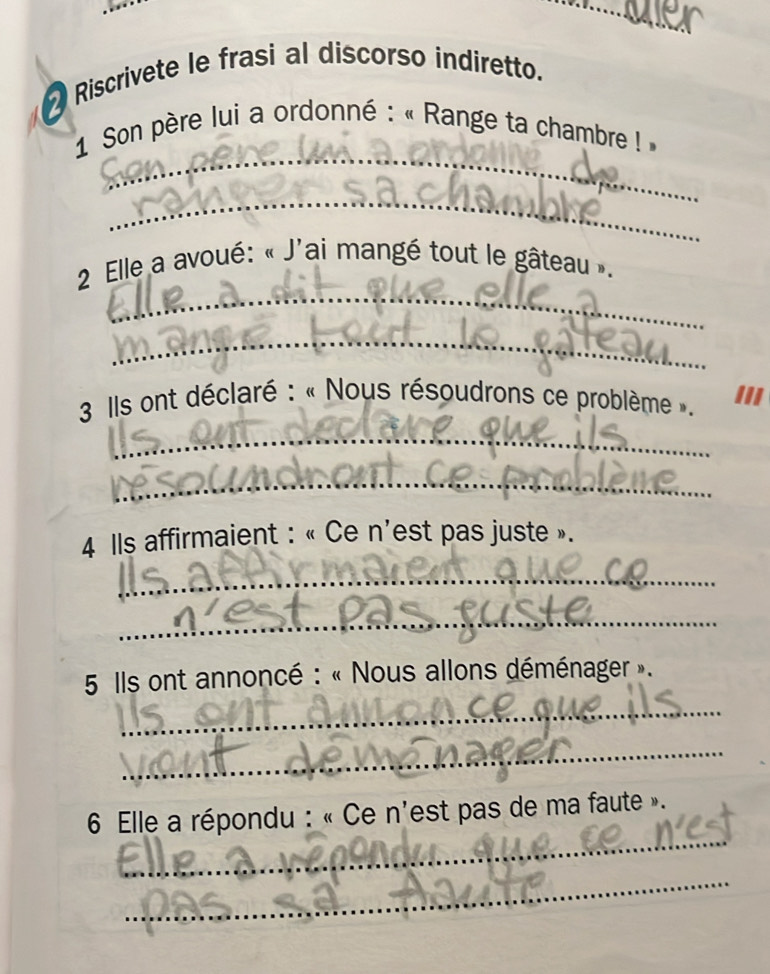 2 Riscrivete le frasi al discorso indiretto.
1 Son père lui a ordonné : « Range ta chambre ! »
Son père lui a ordonné de
ranger sa chambre
2 Elle a avoué: « J'ai mangé tout le gâteau ».
Elle a dit que elle a
mangé tout le gâteau
3 Ils ont déclaré : « Nous résoudrons ce problème ».
Ils ont déclaré que ils
résoundront ce problème
4 Ils affirmaient : « Ce n'est pas juste ».
Ils affirmaient que ce
n'est pas guste
5 Ils ont annoncé : « Nous allons déménager ».
Ils ont annoncé que ils
vont déménager
6 Elle a répondu : « Ce n'est pas de ma faute ».
Elle a répondu que ce n'est
pas sa faute